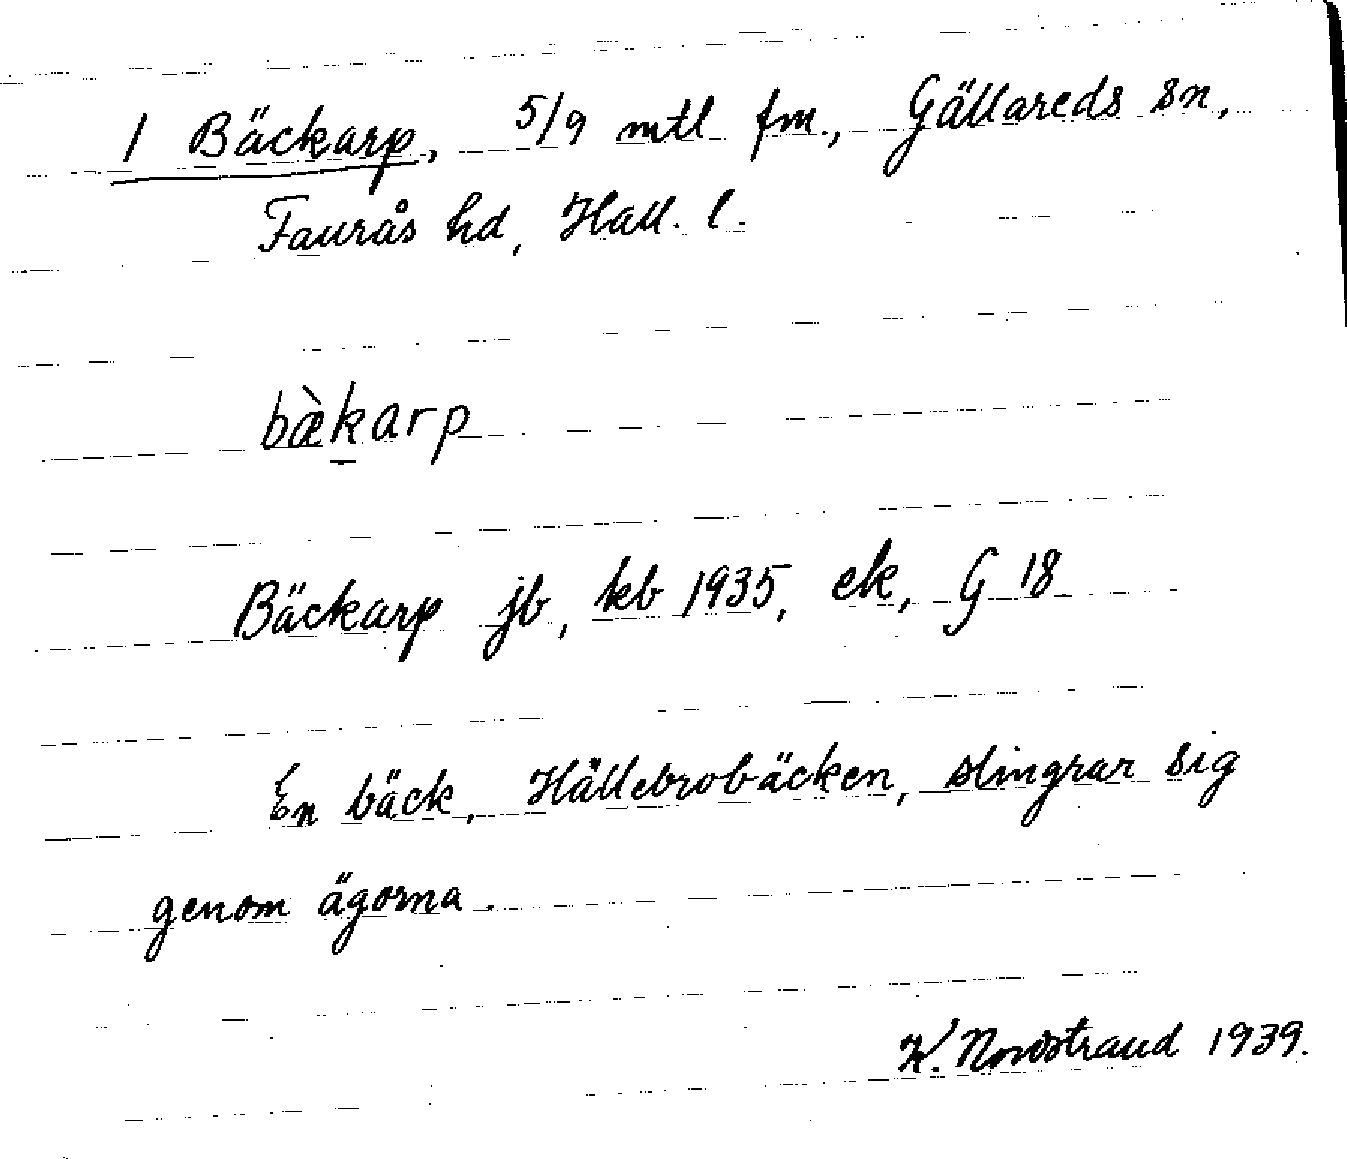 1 Bäckarp, 5/9 mtl fm., Gällareds sn,
Faurås hd, Hall. l.
bæ̀karp
Bäckarp jb, kb 1935, ek, G 18
En bäck, Hällebrobäcken, slingrar sig
genom ägorna.
K. Nordstrand 1939.